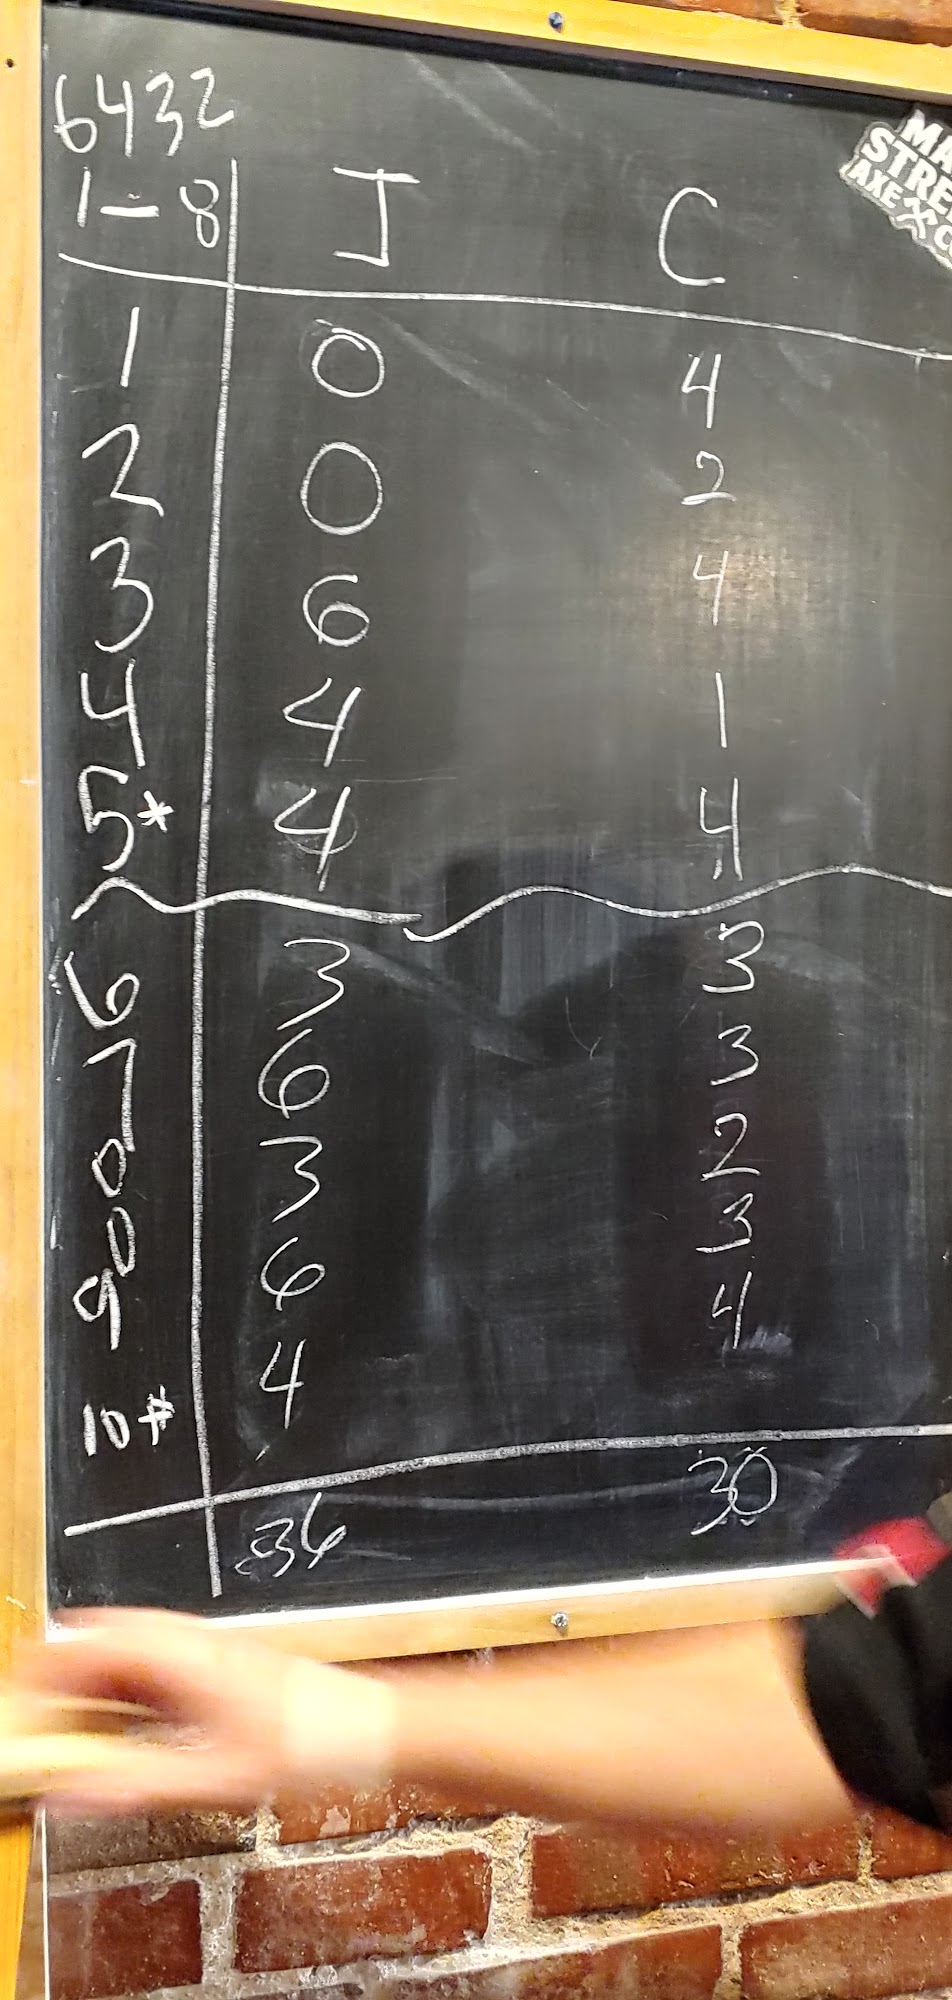 6432
1-8 J C
1 0 4
2 0 2
3 6 4
4 4 1
5* 4 4
6 3 3
7 6 3
8 3 2
9 6 3
10# 4 4
36 30
MA
STRE
AXE C